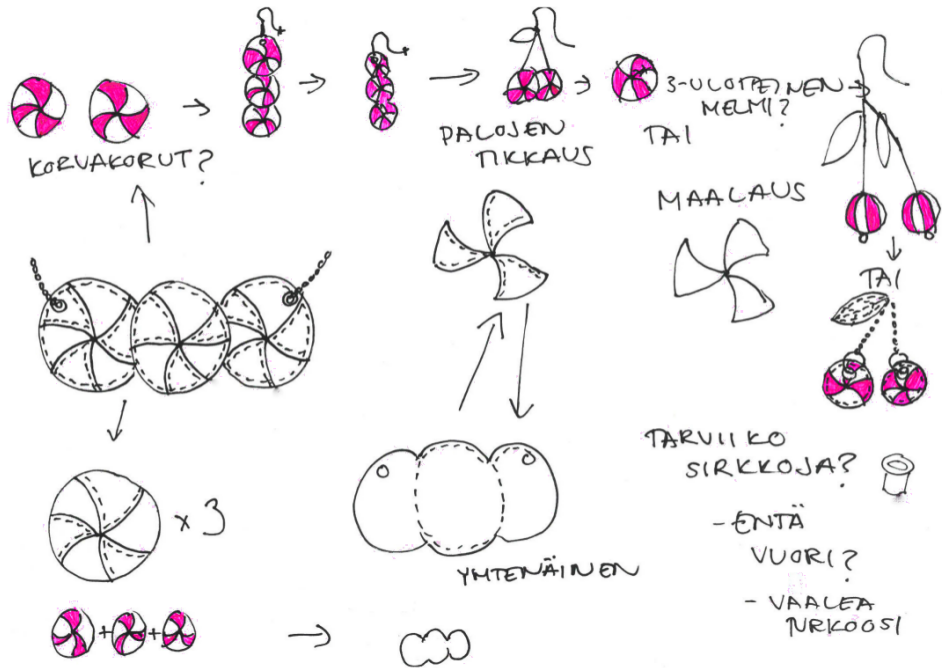 KORVAKORUT?
PALOJEN
TIKKAUS
3-ULOTTEINEN
HELMI?
TAI
MAALAUS
TAI
x 3
YHTENÄINEN
TARVIIKO
SIRKKOJA?
- ENTÄ
VUORI?
- VAALEA
NRKOOSI
+ +